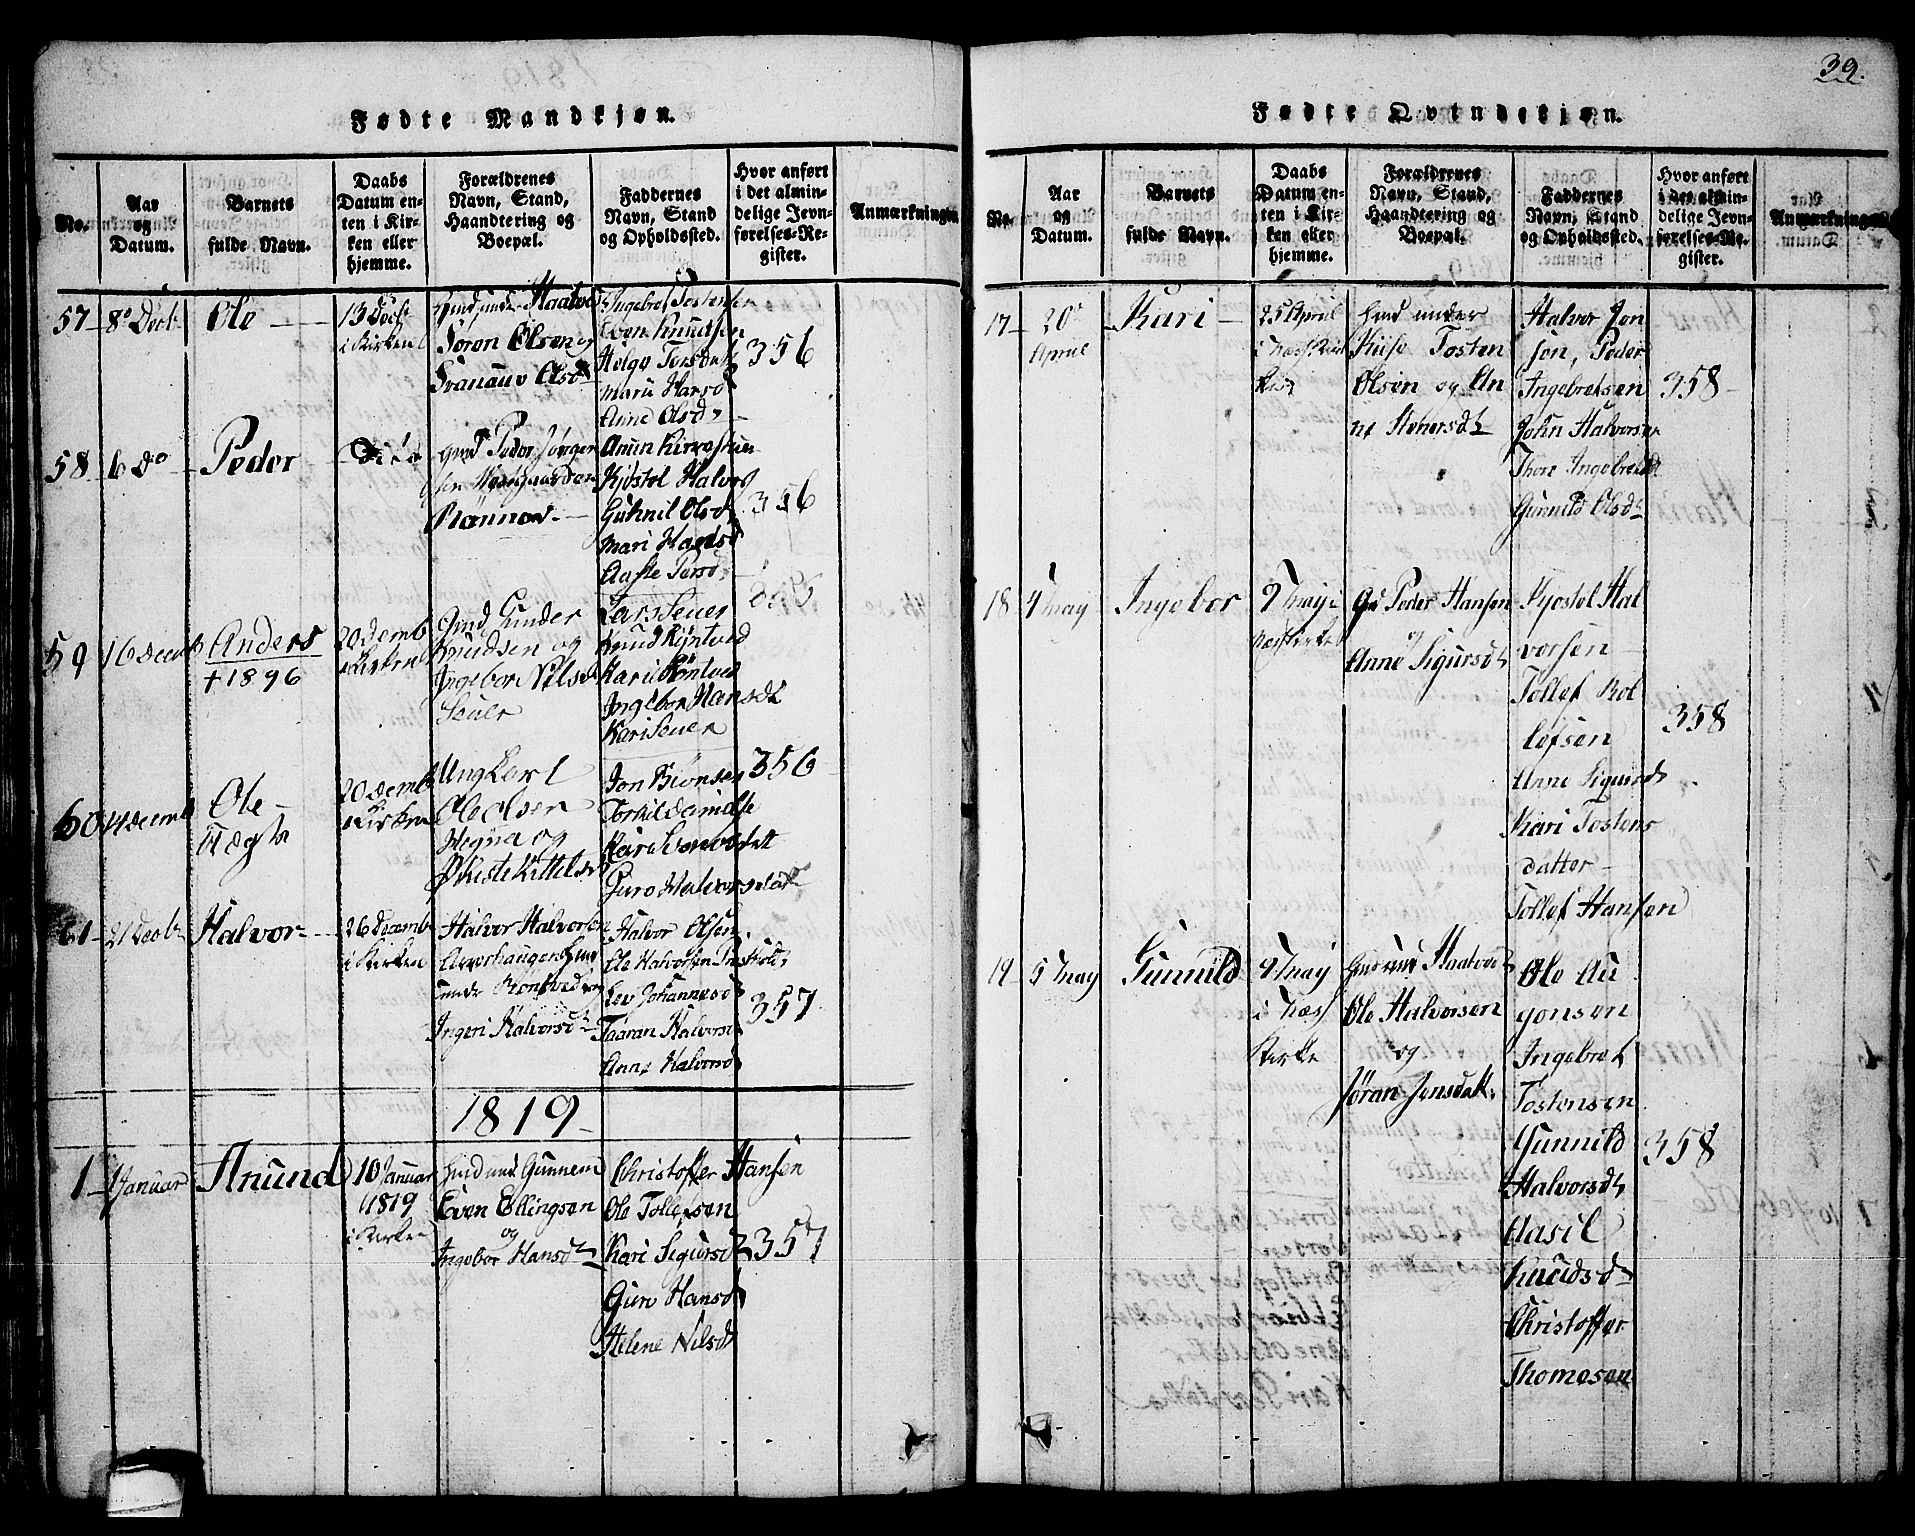 39.
Fødte Mandkjøn.
No.
Aar og Datum.
Barnets fulde Navn.
Daabs Datum enten i Kirken eller hjemme.
Forældrenes Navn, Stand, Haandtering og Boepæl.
Faddernes Navn, Stand og Opholdssted.
Hvor anført i det almindelige Jevnførelses-Register.
Anmærkninger
57
8de Decbr
Ole
13 Decbr
i Kirken
Søron Olsen og
Olsd
Ingebret Tostensen
Even Knudsen
Helge Torsd
Mari Hansd
Anne Olsd
356
58
6 do
Peder
Peder Jørgen
sen
Rønnov
Kjøstol Halvors
Gunnil Olsd
Mari Hansd
Aaste Persd
356
59
16 Decemb
Anders
+ 1896
20 Decemb
i Kirken
Gmd Gunder
Knudsen og
Ingebor Nilsd
Seuer
Lars Seuer
Knud Røntved
Kari Røntved
Ingebor Hansdt
Kari Seuer
356
60
14 Decemb
Ole
Uægte
20 Decemb
i Kirken
Ung Karl
Ole Olsen
Hegna og
Kittelsd
Jon Biönsen
Guro Halvorsdat
356
61
21 Decbr
Halvor
26 Decemb
i Kirken
Halvor Halvorsen
Ingeri Halvorsdt
Halvor Olsen
Ole Halvorsen
Lev Johannesd
Taaran Halvorsd
Anne Halvorsd
357
1819
1
4 Januar
Anund
10 Januar
1819
i Kirken
Even Ellingsen
og
Ingebor Hansdt
Christoffer Hansen
Ole Tollefsen
Kari Sigursd
Guro Hansd
Helene Nilsd
357
Fødte Qvindekjøn.
No.
Aar og Datum.
Barnets fulde Navn.
Daabs Datum enten i Kirken eller hjemme.
Forældrenes Navn, Stand, Haandtering og Boepæl.
Faddernes Navn, Stand og Opholdssted.
Hvor anført i det almindelige Jevnførelses-Register.
Anmærkninger
17
20de
April
Kari
25 April
Hmd under
Tosten
Olsen og An
ne Stenersdt
Halvor Jon
sen, Peder
Ingebretsen
John Halvorsen
Thore Ingebretsd
Gunnild Olsdt
358
18
4 May
Ingebor
9 May i
Næs Kirke
Peder Hansen
og
Anne Sigursdt
Kjøstol Hal
vorsen
Tollef Rol
lefsen
Anne Sigursd
Kari Tostens
datter
Tollef Hansen
358
19
5 May
Gunnild
9 May
i Næs
Kirke
Ole Halvorsen
og
Jøran Jensdatt.
Ole Au
gonsen
Ingebret
Tostensen
Gunnild
Halvorsdt
Aasil
Knudsd
Christoffer
Thomesen
358